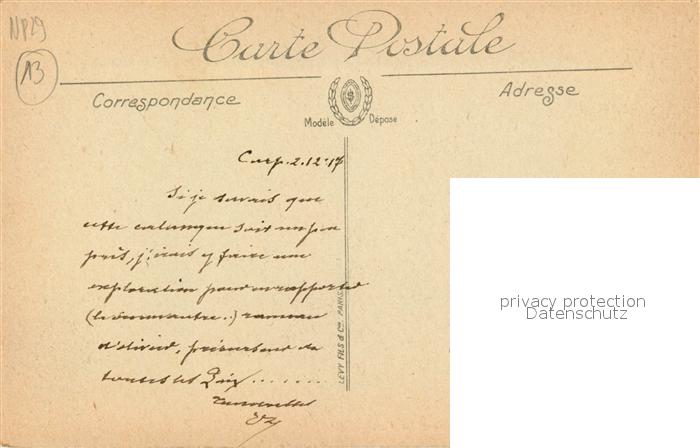 NP29
13
Carte Postale
Correspondance
Adresse
Modèle Déposé
Carp. 2.12.17
Si je savais que
cette calanque soit un peu
près, j'irais y faire une
exploration pour en rapporter
rameau
d'olivier, de
toutes les Paix .......
LEVY FILS & Cie. PARIS
privacy protection
Datenschutz